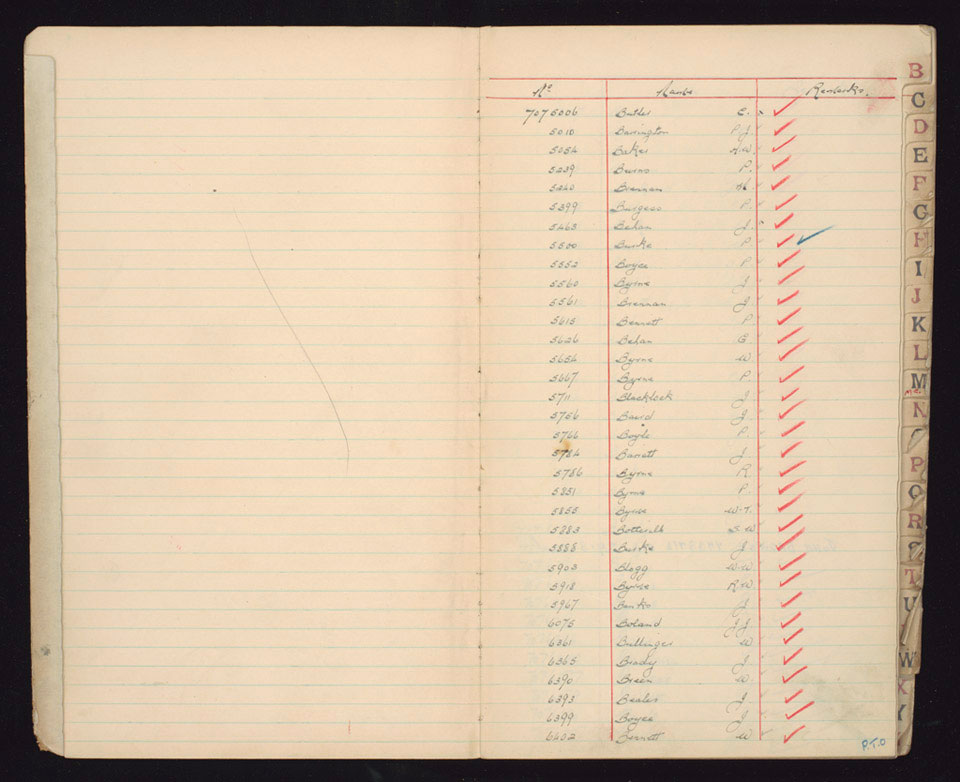 No Name Remarks.
7075006 Butler E.
5010 Barrington P J
5054 Baker H.W.
5239 Burns P.
5240 Brennan M
5399 Burgess P.
5463 Behan J.
5500 Burke P
5552 Boyce P
5560 Byrne J
5561 Brennan J
5615 Bennett P
5626 Behan C
5654 Byrne W
5667 Byrne P.
5711 Blacklock J
5736 Baird J.
5766 Boyle P.
5784 Barrett J
5786 Byrne R
5851 Byrne P.
5855 Byrne W.T.
5883 S.W
5888 Burke J
5903 Blogg W.W.
5918 Byrne R.W
5967 Banks J
6075 Boland J J.
6361 Bullinger W
6365 Brady J
6390 Breen W.
6393 Beales J
6399 Boyce J
6402 Bennett W
P.T.O
B
C
D
E
F
G
H
I
J
K
L
M
Mc
N
P
Q
R
S
T
U
W
X
Y